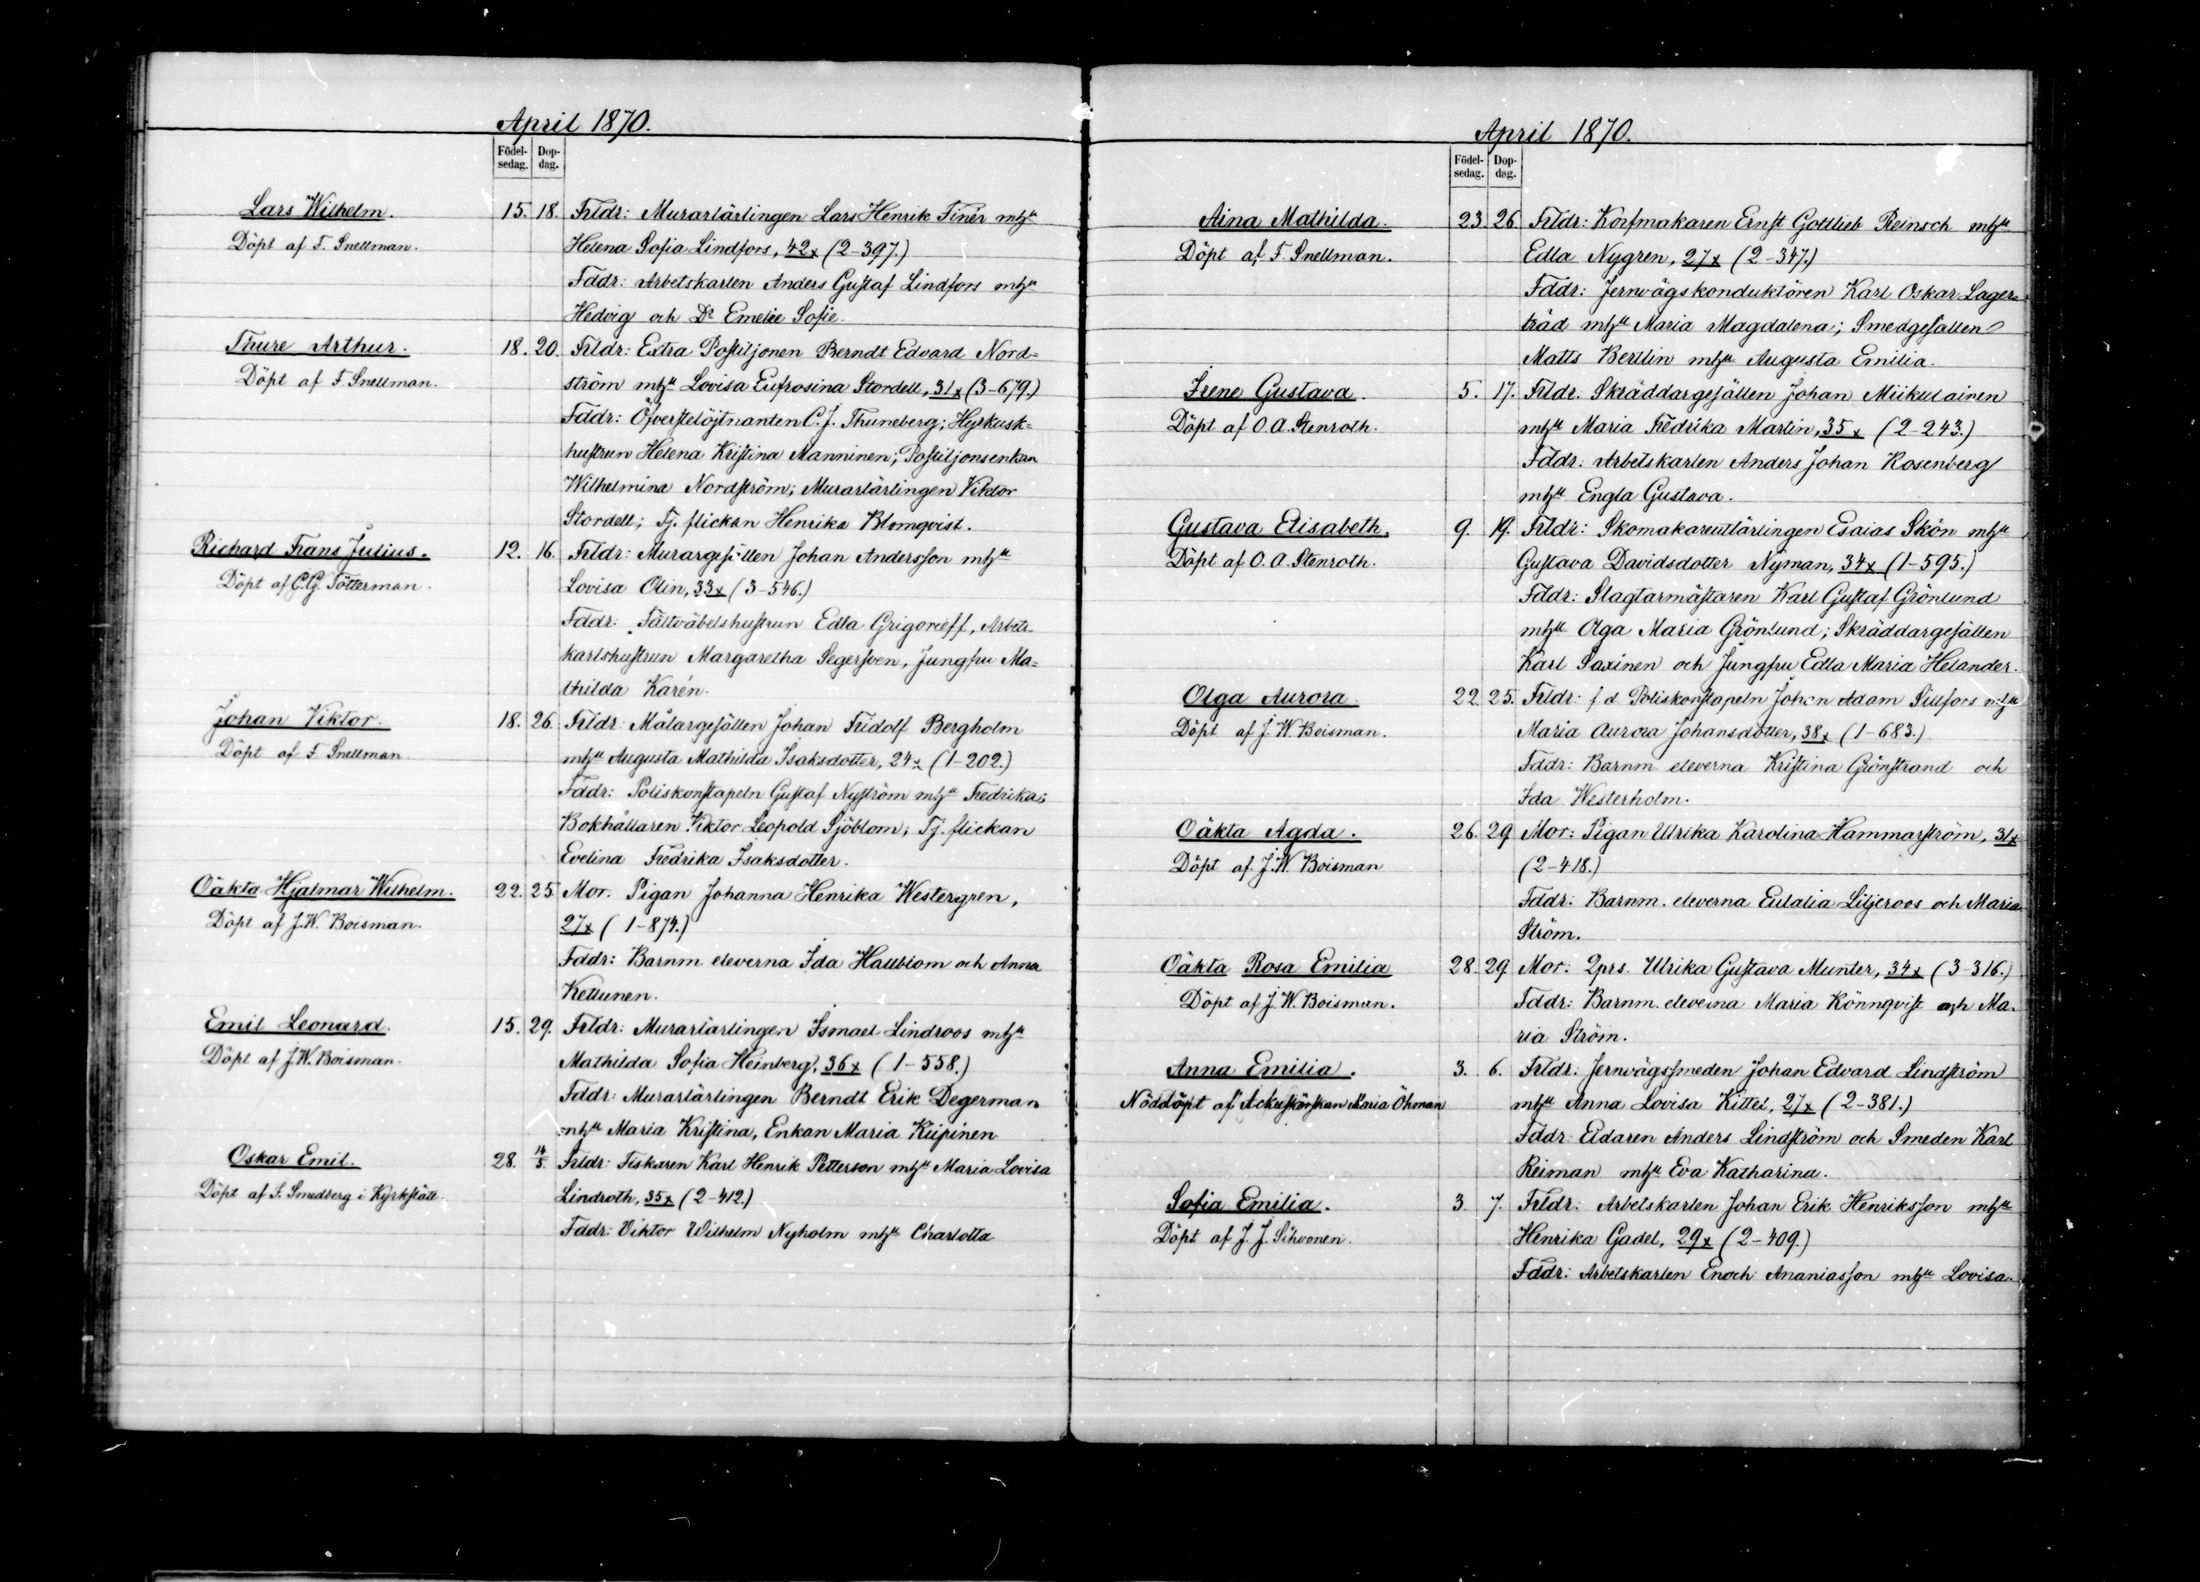 April 1870.
Födel-sedag. Dop-dag.
Lars Wilhelm. 15. 18. Frldr: Murarlärlingen Lars Henrik Finér mhu
Döpt af F. Snellman. Helena Sofia Lindfors, 42x (2-397.)
Fddr: Arbetskarlen Anders Gustaf Lindfors mhu
Hedvig och Dr Emelie Sofie.
Thure Arthur. 18. 20. Frldr: Extra Postiljonen Berndt Edvard Nord=
Döpt af F. Snellman. ström mhu Lovisa Eufrosina Stordell, 31x (3-679.)
Fddr: Öfverstelöjtnanten C. J. Thuneberg; Hyrkusk=
hustrun Helena Kristina Manninen; Postiljonsenkan
Wilhelmina Nordström; Murarlärlingen Viktor
Stordell; Tj. flickan Henrika Blomqvist.
Richard Frans Julius. 12. 16. Frldr: Murargesällen Johan Andersson mhu
Döpt af C. G. Tötterman. Lovisa Olin, 33x (3-546.)
Fddr: Fältväbelshustrun Edla Grigorieff, Arbets-
karlshustrun Margaretha Segersven, Jungfru Ma=
thilda Karén.
Johan Viktor. 18. 26. Frldr: Målargesällen Johan Fridolf Bergholm
Döpt af F. Snellman. mhu Augusta Mathilda Isaksdotter, 24x (1-202.)
Fddr: Poliskonstapeln Gustaf Nyström mhu Fredrika;
Bokhållaren Viktor Leopold Sjöblom; Tj. flickan
Evelina Fredrika Isaksdotter.
Oäkta Hjalmar Wilhelm. 22. 25. Mor: Pigan Johanna Henrika Westergren,
Döpt af J. W. Boisman. 27x (1-874.)
Fddr: Barnm. eleverna Ida Hallblom och Anna
Kettunen.
Emil Leonard. 15. 29. Frldr: Murarlärlingen Ismael Lindroos mhu
Döpt af J. W. Boisman. Mathilda Sofia Heinberg, 36x (1-558.)
Fddr: Murarlärlingen Berndt Erik Degerman
mhu Maria Kristina, Enkan Maria Kiipinen
Oskar Emil. 28. 14/5. Frldr: Fiskaren Karl Henrik Petterson mhu Maria Lovisa
Döpt af S. Smedberg i Kyrkslätt. Lindroth, 35x (2-412.)
Fddr: Viktor Wilhelm Nyholm mhu Charlotta
April 1870.
Födel-sedag. Dop-dag.
Aina Mathilda. 23. 26. Frldr: Korfmakaren Ernst Gottlieb Reinsch mhu
Döpt af F. Snellman. Edla Nygren, 27x (2-347.)
Fddr: Jernvägskonduktören Karl Oskar Lager=
träd mhu Maria Magdalena; Smedgesällen
Matts Bertlin mhu Augusta Emilia.
Irene Gustava. 5. 17. Frldr. Skräddargesällen Johan Miikulainen
Döpt af O. A. Stenroth. mhu Maria Fredrika Martin, 35x (2-243.)
Fddr: Arbetskarlen Anders Johan Rosenberg
mhu Engla Gustava.
Gustava Elisabeth. 9. 19. Frldr: Skomakarelärlingen Esaias Skön mhu
Döpt af O. A. Stenroth. Gustava Davidsdotter Nyman, 34x (1-595.)
Fddr: Slagtarmästaren Karl Gustaf Grönlund
mhu Olga Maria Grönlund; Skräddargesällen
Karl Saxinen och Jungfru Edla Maria Helander.
Olga Aurora. 22. 25. Frldr: f.d Poliskonstapeln Johan Adam Sillfors mhu
Döpt af J. W. Boisman. Maria Aurora Johansdotter, 38x (1-683.)
Fddr: Barnm. eleverna Kristina Grönstrand och
Ida Westerholm.
Oäkta Agda. 26. 29. Mor: Pigan Ulrika Karolina Hammarström, 31x
Döpt af J. W. Boisman (2-418.)
Fddr: Barnm. eleverna Eulalia Liljeroos och Maria
Ström.
Oäkta Rosa Emilia 28. 29. Mor: Qprs. Ulrika Gustava Munter, 34x (3-316.)
Döpt af J. W. Boisman. Fddr: Barnm. eleverna Maria Könnqvist och Ma-
ria Ström.
Anna Emilia. 3. 6. Frldr: Jernvägssmeden Johan Edvard Lindström
Nöddöpt af Ackuskörskan Maria Öhman mhu Anna Lovisa Kittel, 27x (2-381.)
Fddr: Eldaren Anders Lindström och Smeden Karl
Reiman mhu Eva Katharina.
Sofia Emilia. 3. 7. Frldr: Arbetskarlen Johan Erik Henriksson mhu
Döpt af J. J. Sihvonen. Henrika Gadel, 29x (2-409.)
Fddr: Arbetskarlen Enoch Ananiasson mhu Lovisa.